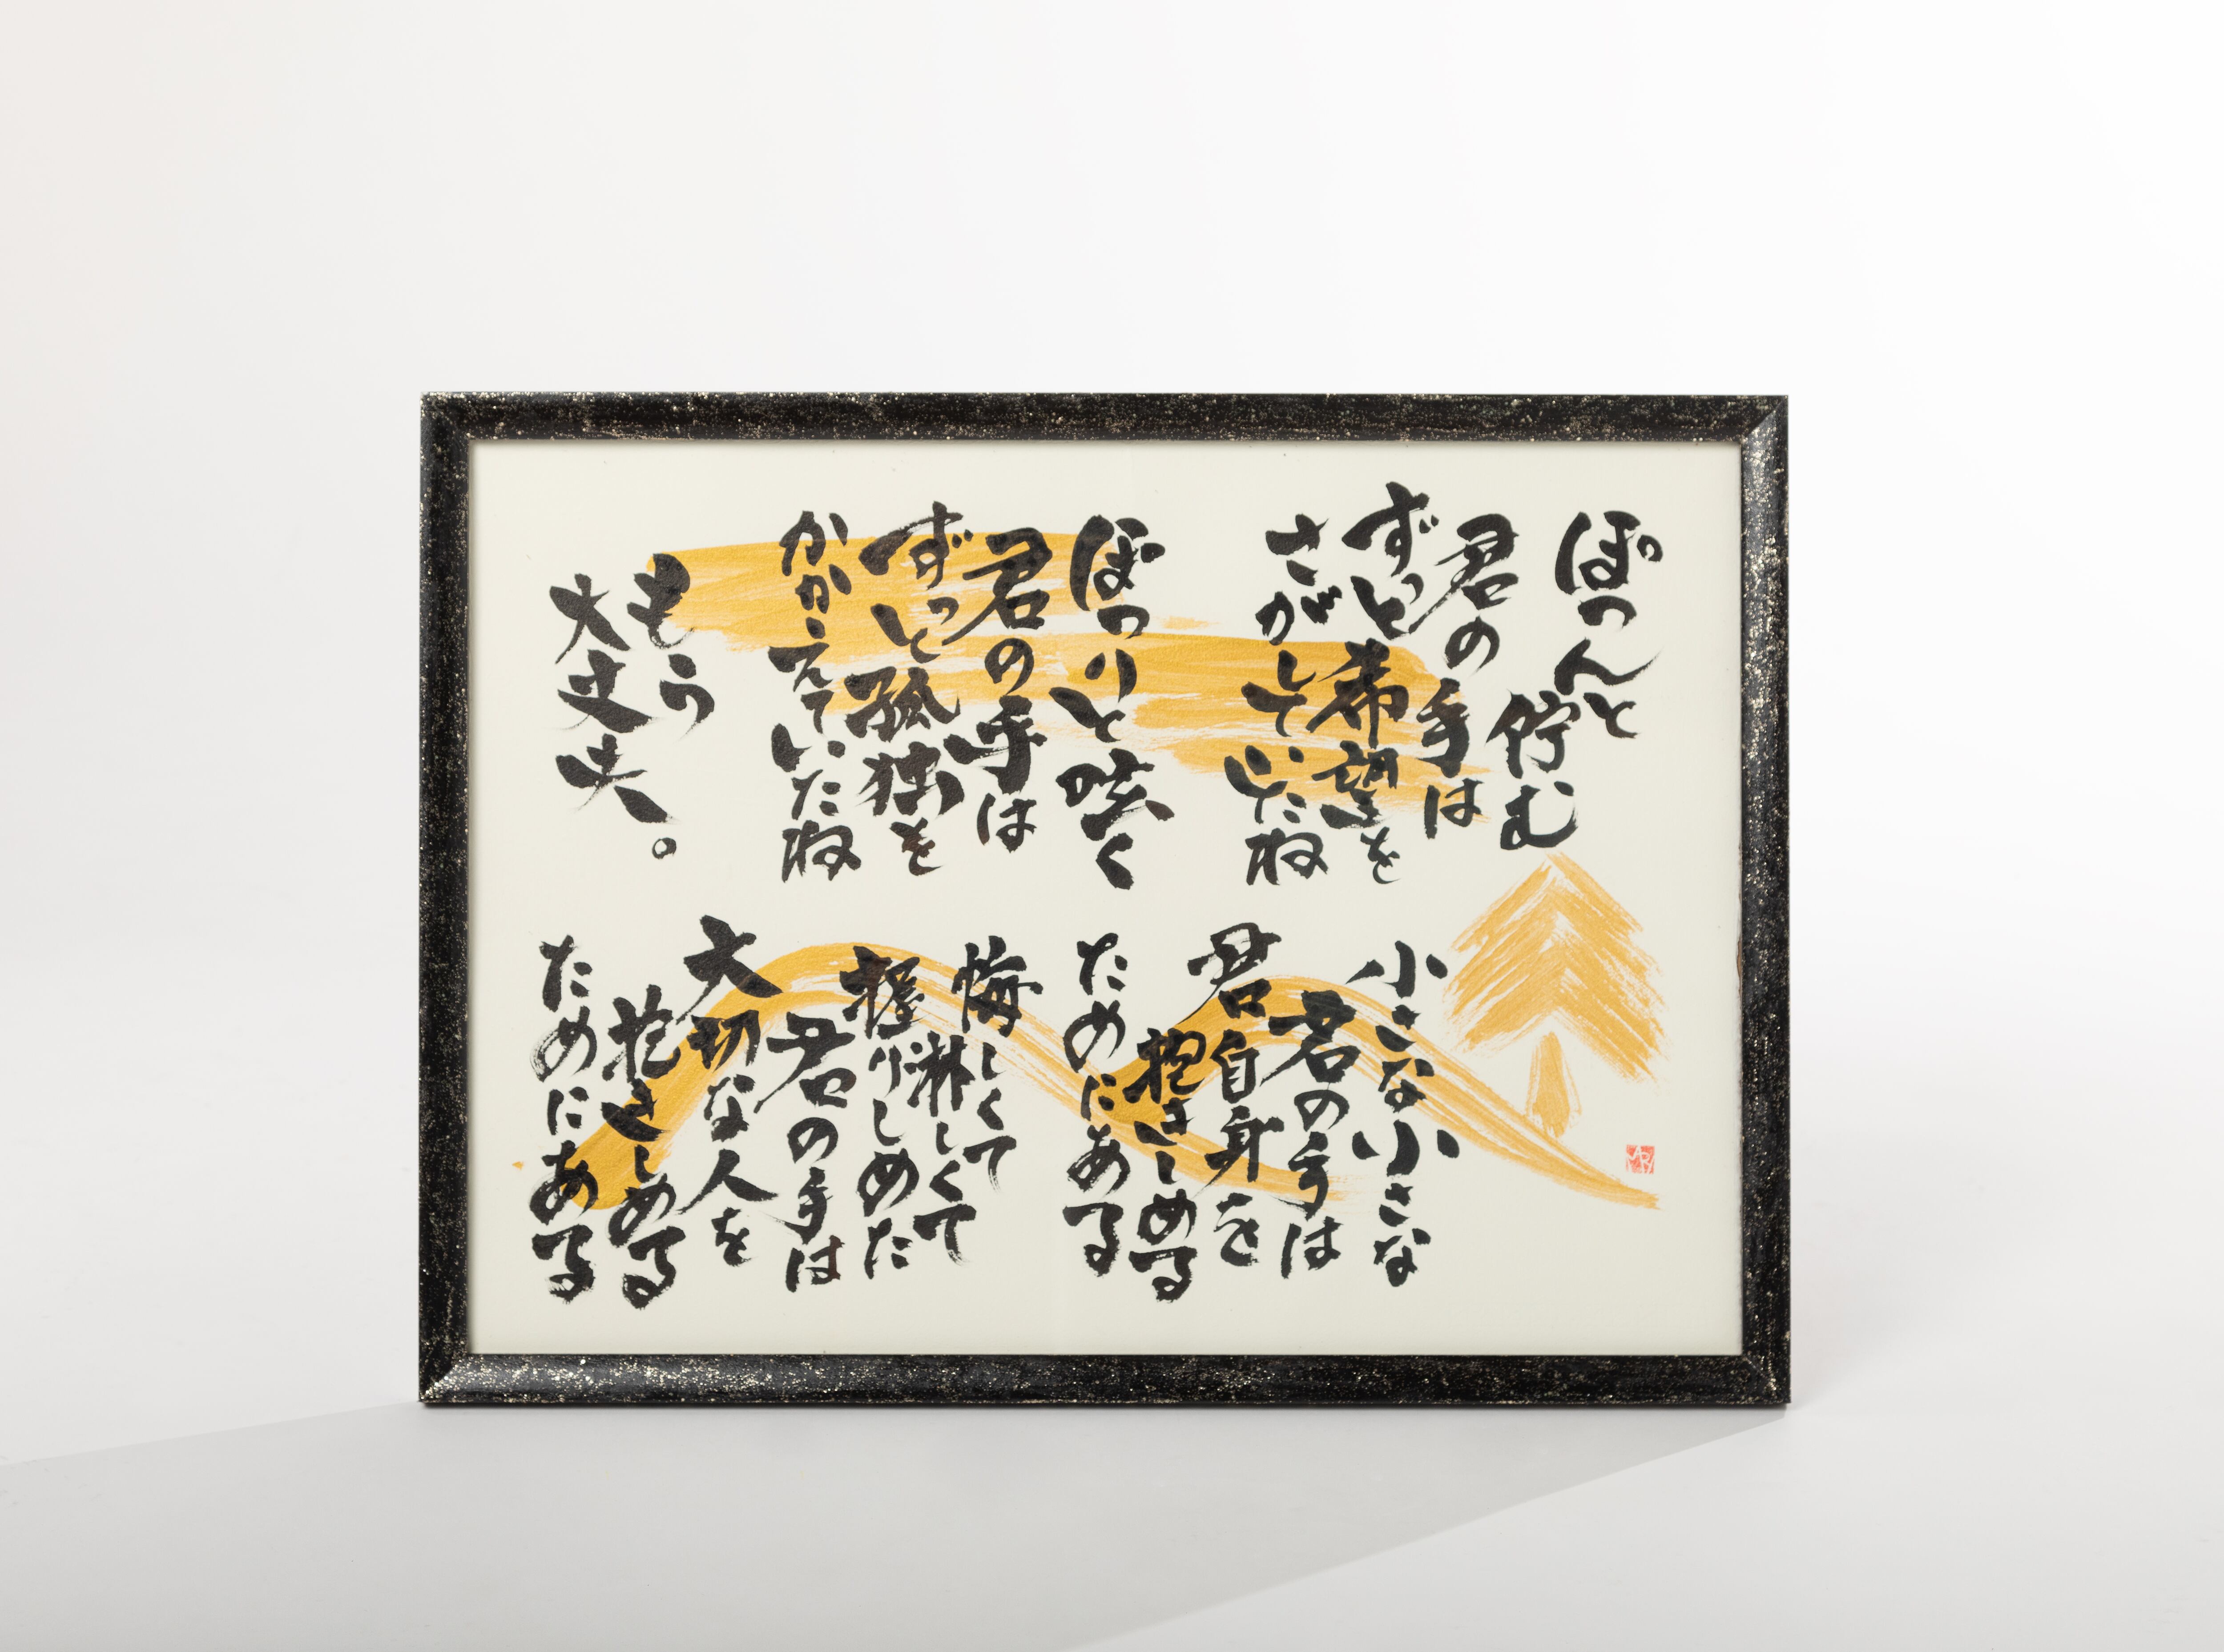 ぽつんと
佇む
君の手は
ずっと希望を
さがしていたね
ぼつりと呟く
君の手は
ずっと孤独を
かかえていたね
もう
大丈夫。
小さな小さな
君の手は
君自身を
抱きしめる
ためにある
悔しくて
淋しくて
握りしめた
君の手は
大切な人を
抱きしめる
ためにある